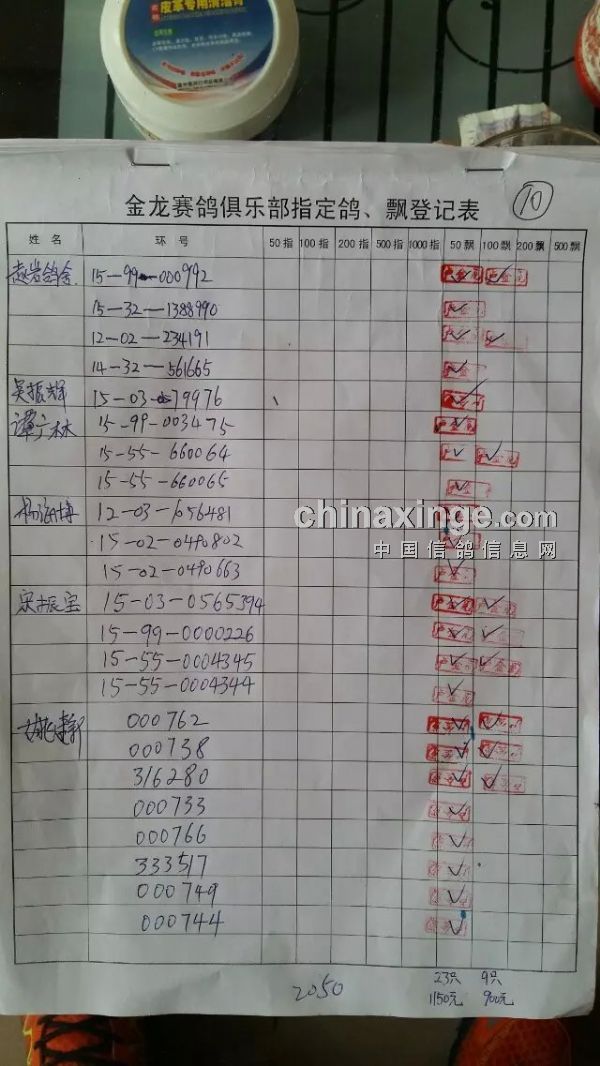 皮革专用清洁膏
金龙赛鸽俱乐部指定鸽、飘登记表 10
姓名 环号 50指 100指 200指 500指 1000指 50飘 100飘 200飘 500飘
赵岩鸽舍 15-99-000992
15-32-1388990
12-02-234191
14-32-561665
吴振辉 15-03-579976
谭广林 15-99-003475
15-55-660064
15-55-660065
杨海博 12-03-1056481
chinaxinge.com
15-02-0490802
中国信鸽信息网
15-02-0490663
宋振宝 15-03-0565394
15-99-0000226
15-55-0004345
15-55-0004344
000762
000738
316280
000733
000766
333517
000749
000744
2050 23只 9只
1150元 900元